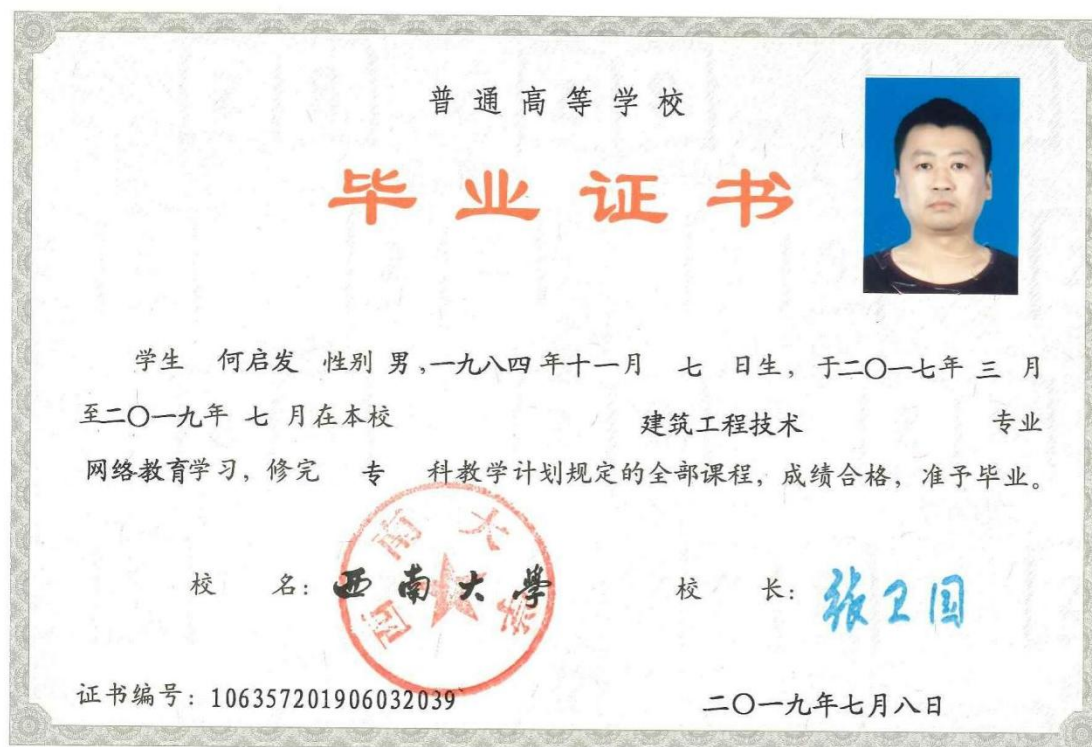 普通高等学校
毕业证书
学生 何启发 性别 男,一九八四年十一月 七 日生,于二〇一七年 三 月
至二〇一九年 七 月在本校 建筑工程技术 专业
网络教育学习,修完 专 科教学计划规定的全部课程,成绩合格,准予毕业。
校 名:西南大學 校 长:张卫国
西南大学
证书编号:106357201906032039 二〇一九年七月八日